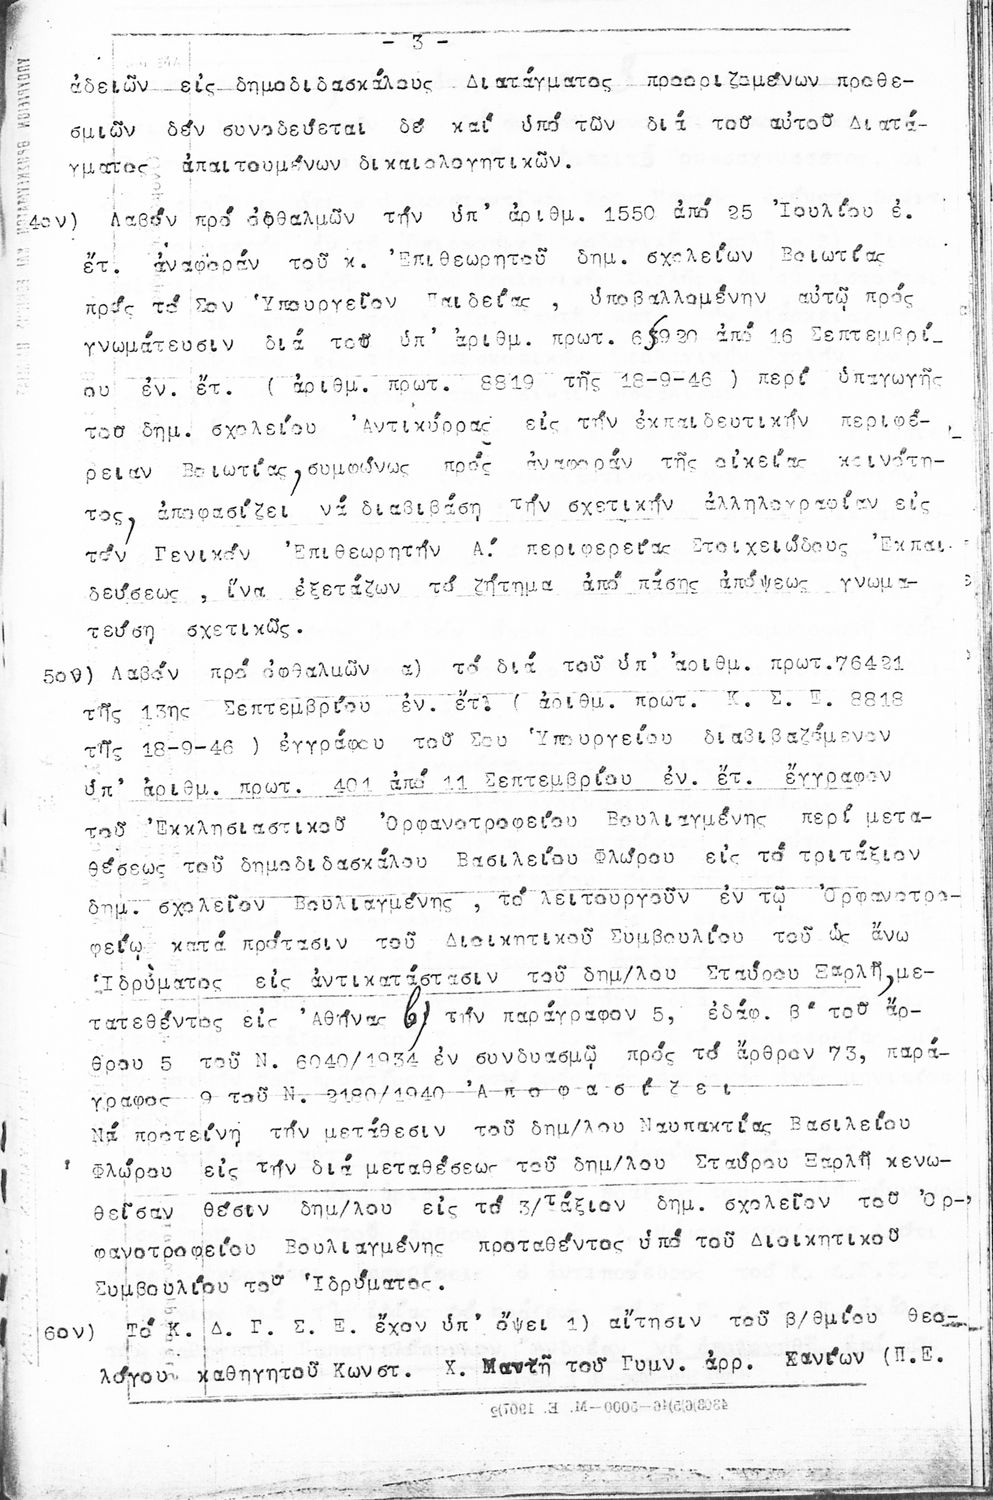 - 3 -
ἀδειῶν εἰς δημοδιδασκάλους Διατάγματος προοριζομένων προθε-
σμιῶν δέν συνοδεύεται δέ καί ὑπό τῶν διά τοῦ αὐτοῦ Διατά-
γματος ἀπαιτουμένων δικαιολογητικῶν.
4ον) Λαβόν πρό ὀφθαλμῶν τήν ὑπ' ἀριθμ. 1550 ἀπό 25 Ἰουλίου ἐ.
ἔτ. ἀναφοράν τοῦ κ. Ἐπιθεωρητοῦ δημ. σχολείων Βοιωτίας
πρός τό Σον Ὑπουργεῖον Παιδείας , ὑποβαλλομένην αὐτῷ πρός
γνωμάτευσιν διά τοῦ ὑπ' ἀριθμ. πρωτ. 65920 ἀπό 16 Σεπτεμβρί_
ου ἐν. ἔτ. ( ἀριθμ. πρωτ. 8819 τῆς 18-9-46 ) περί ὑπαγωγῆς
του δημ. σχολείου Ἀντικύρρας εἰς τήν ἐκπαιδευτικήν περιφέ-
ρειαν Βοιωτίας, συμφώνως πρός ἀναφοράν τῆς οἰκείας κοινότη-
τος, ἀποφασίζει νά διαβιβάση τήν σχετικήν ἀλληλογραφίαν εἰς
τόν Γενικόν Ἐπιθεωρητήν Α΄ περιφερείας Στοιχειώδους Ἐκπαι-
δεύσεως , ἵνα ἐξετάζων τό ζήτημα ἀπό πάσης ἀπόψεως γνωμα-
τεύση σχετικῶς.
5ον) Λαβόν πρό ὀφθαλμῶν α) τό διά τοῦ ὑπ' ἀριθμ. πρωτ.76421
τῆς 13ης Σεπτεμβρίου ἐν. ἔτ. ( ἀριθμ. πρωτ. Κ. Σ. Ε. 8818
τῆς 18-9-46 ) ἐγγράφου τοῦ Σου Ὑπουργείου διαβιβαζόμενον
ὑπ' ἀριθμ. πρωτ. 401 ἀπό 11 Σεπτεμβρίου ἐν. ἔτ. ἔγγραφον
τοῦ Ἐκκλησιαστικοῦ Ὀρφανοτροφείου Βουλιαγμένης περί μετα-
θέσεως τοῦ δημοδιδασκάλου Βασιλείου Φλώρου εἰς τό τριτάξιον
δημ. σχολεῖον Βουλιαγμένης , τό λειτουργοῦν ἐν τῷ Ὀρφανοτρο-
φείῳ κατά πρότασιν τοῦ Διοικητικοῦ Συμβουλίου τοῦ ὡς ἄνω
Ἱδρύματος εἰς ἀντικατάστασιν τοῦ δημ/λου Σταύρου Σαρλῆ, με-
τατεθέντος εἰς Ἀθήνας β) τήν παράγραφον 5, ἐδάφ. β΄ τοῦ ἄρ-
θρου 5 τοῦ Ν. 6040/1934 ἐν συνδυασμῷ πρός τό ἄρθρον 73, παρά-
γραφος 9 τοῦ Ν. 2180/1940 Ἀ π ο φ α σ ί ζ ε ι
Νά προτείνῃ τήν μετάθεσιν τοῦ δημ/λου Ναυπακτίας Βασιλείου
Φλώρου εἰς τήν διά μεταθέσεως τοῦ δημ/λου Σταύρου Σαρλῆ κενω-
θεῖσαν θέσιν δημ/λου εἰς τό 3/τάξιον δημ. σχολεῖον τοῦ Ὀρ-
φανοτροφείου Βουλιαγμένης προταθέντος ὑπό τοῦ Διοικητικοῦ
Συμβουλίου τοῦ Ἱδρύματος.
6ον) Τό Κ. Δ. Γ. Σ. Ε. ἔχον ὑπ' ὄψει 1) αἴτησιν τοῦ β/θμίου θεο-
λόγου καθηγητοῦ Κωνστ. Χ. Μαντῆ τοῦ Γυμν. ἀρρ. Χανίων (Π.Ε.